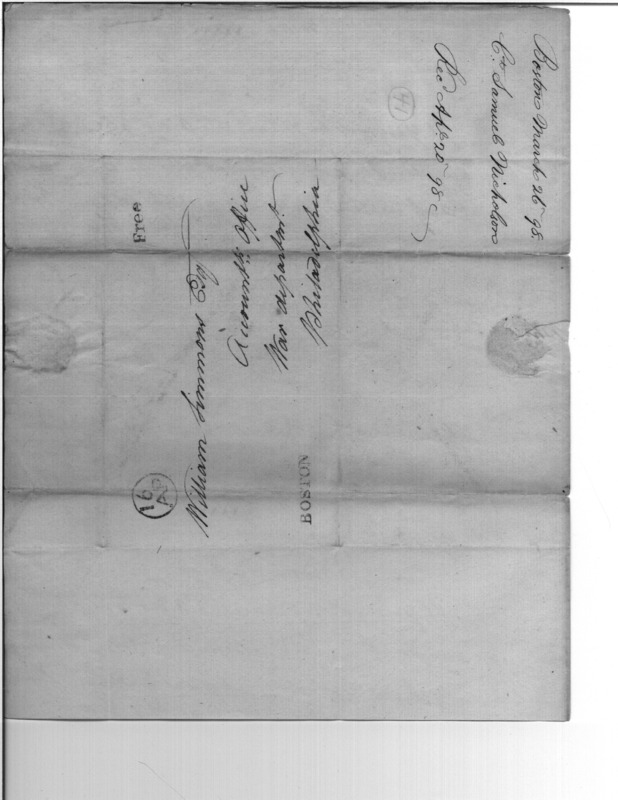 Boston March 26 98
Cn Samuel Nicholson
Rec Apl 20 98
41
Free
William Simmons Esq
Accompts Office
War department
Philadelphia
16
AP
BOSTON